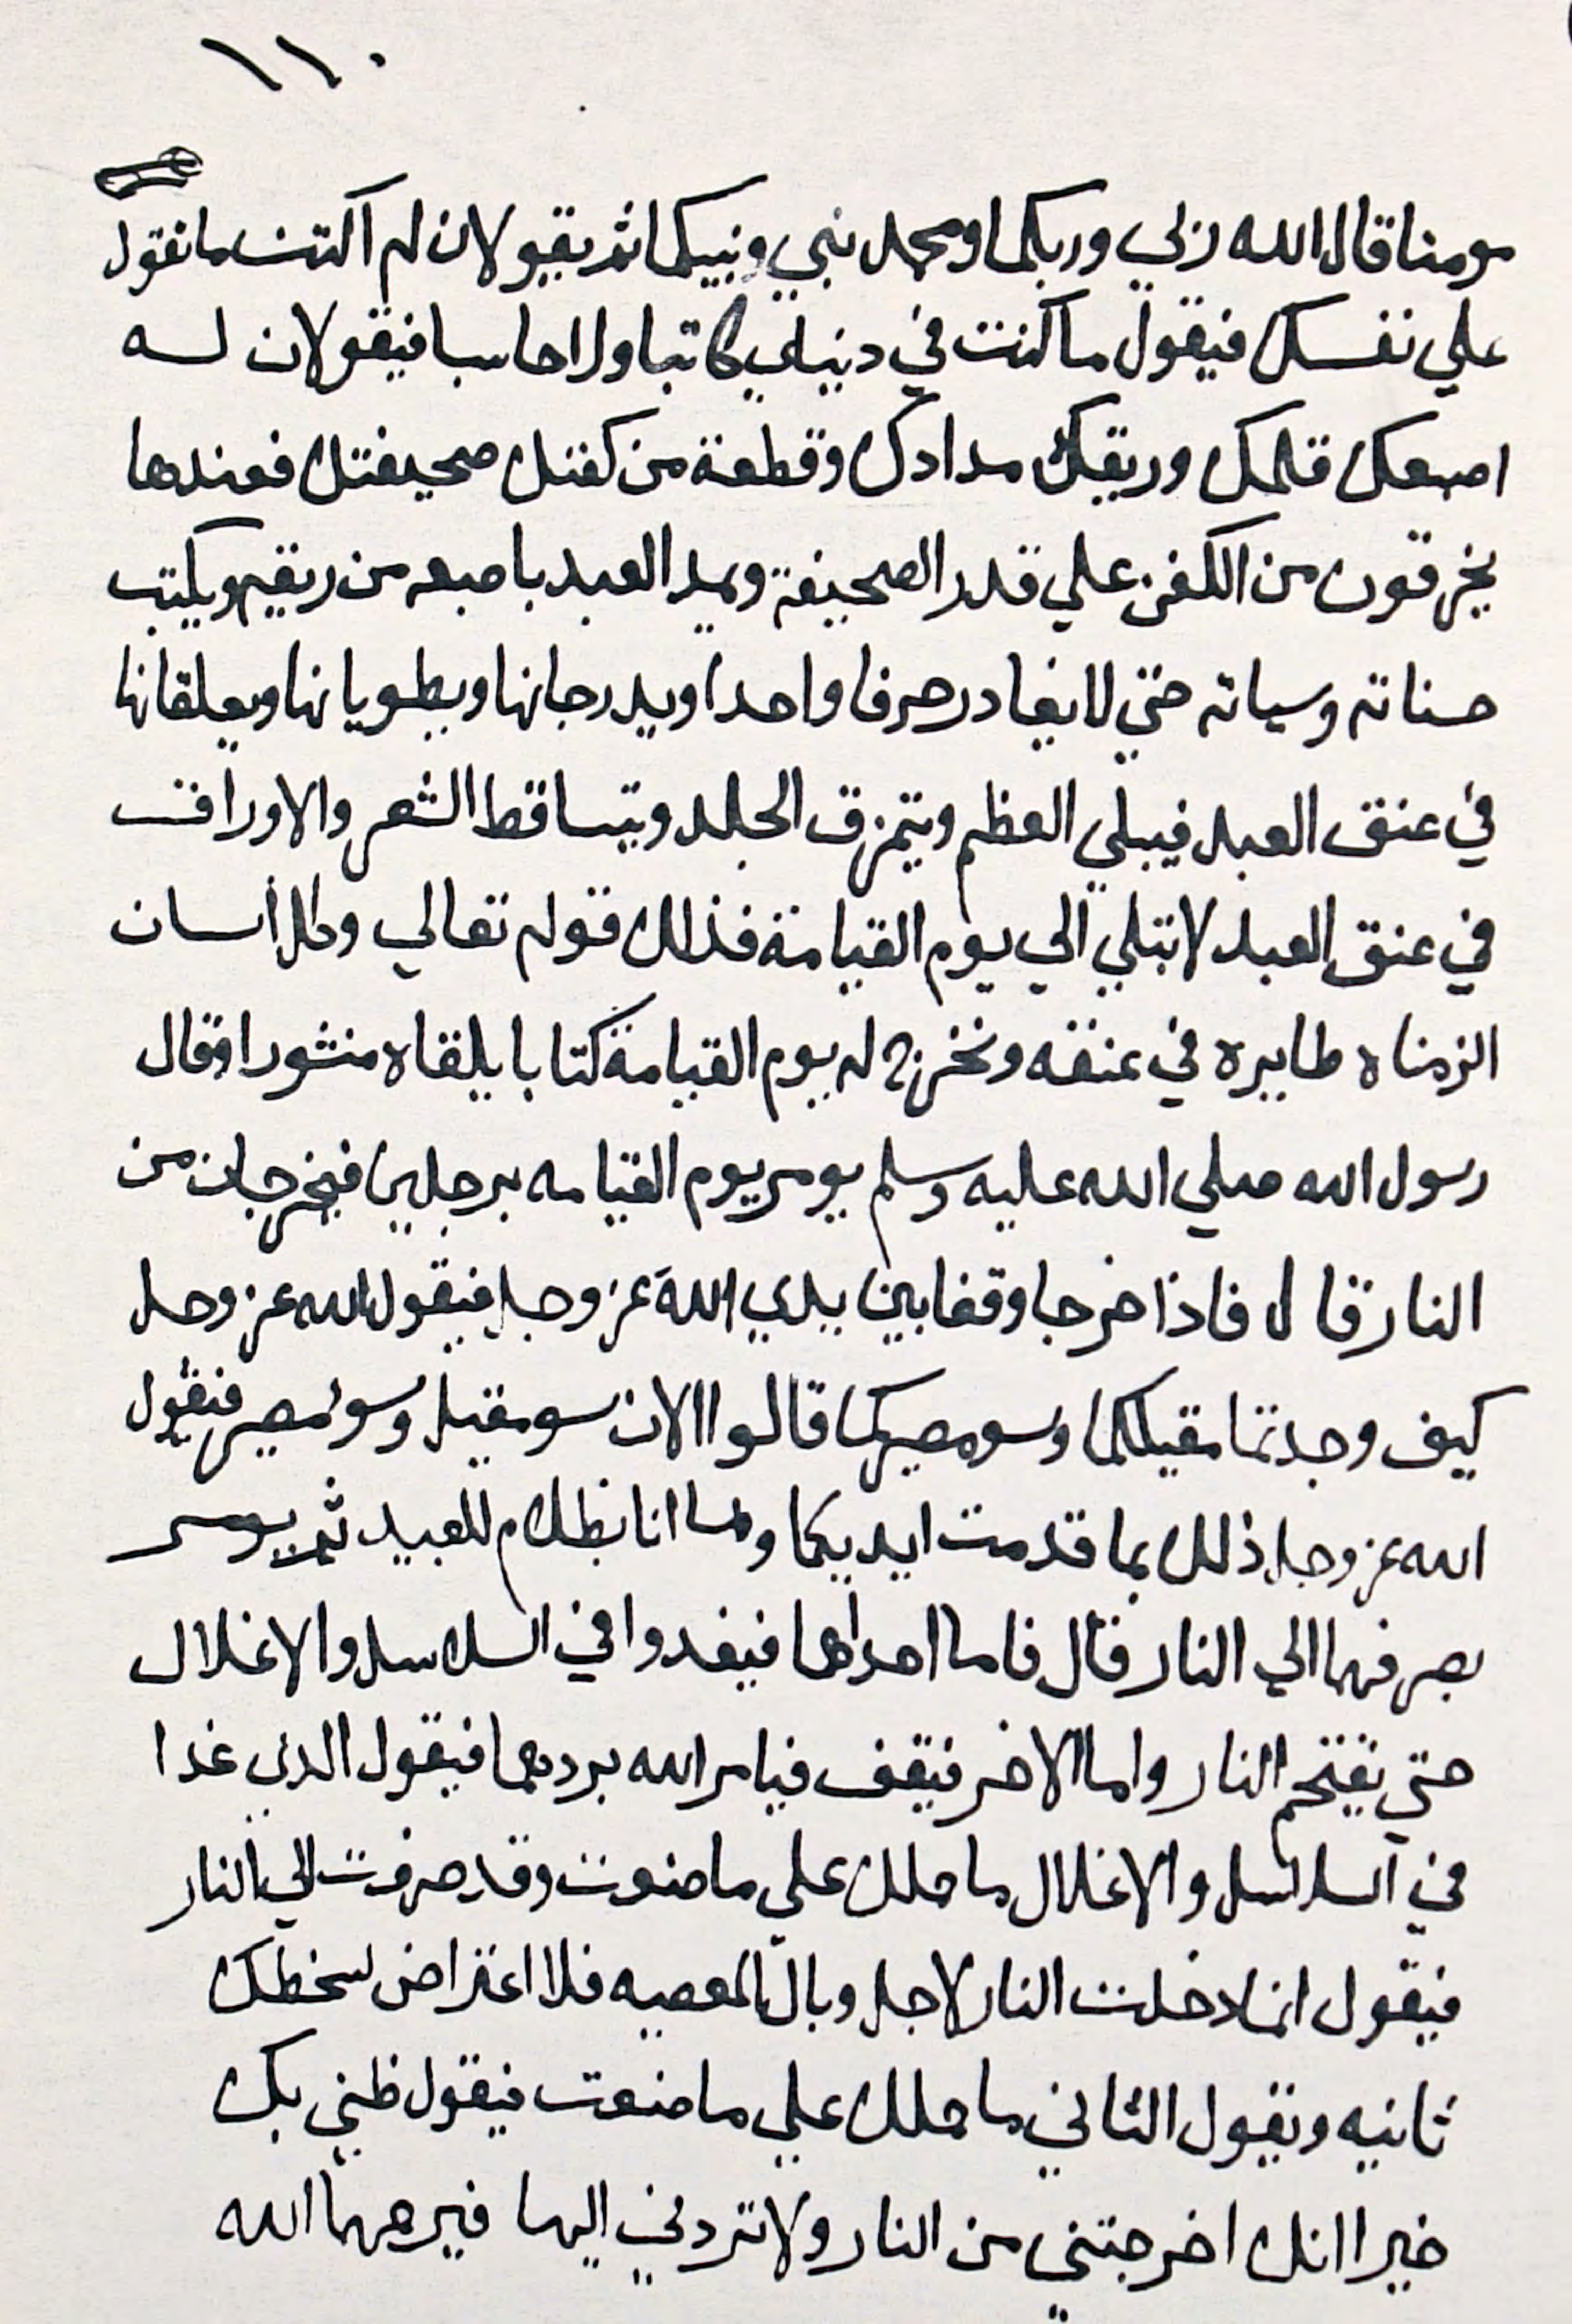 ١١٠
مومنا قال الله ربي وربكما ومحمد نبي ونبيكما ثم يقولان لم اكتب ما تقول
علي نفسك فيقول ما كنت في دنياي كاتبا ولا حاسبا فيقولان له
اصبعك قلمك وريقك مدادك وقطعة من كفنك صحيفتك فعندها
يخرقون من الكفن علي قدر الصحيفة ويمد العبد باصبعه من ريقه ويكتب
حسناته وسياته حتي لا يغادر حرفا واحدا ويدرجانها ويطويانها ويعلقانها
في عنق العبد فيبلي العظم ويتمزق الجلد ويتساقط الشعر والاوراق
في عنق العبد لا تبلي الي يوم القيامة فذلك قوله تعالي وكل انسان
الزمناه طايره في عنقه ونخرج له يوم القيامة كتابا يلقاه منشورا وقال
رسول الله صلي الله عليه وسلم يومر يوم القيامه برجلين فيخرجان من
النار قال فاذا خرجا وقفا بين يدي الله عز وجل فيقول الله عز وجل
كيف وجدتما مقيلكما وسو مصيركما قالوا الان سو مقيل وسو مصير فيقول
الله عز وجل ذلك بما قدمت ايديكما وما انا بظلام للعبيد ثم يومر
بصرفهما الي النار قال فاما احداهما فيغدوا في السلاسل والاغلال
حتي يقتحم النار واما الاخر فيقف فيامر الله بردهما فيقول الذي غدا
في السلاسل والاغلال ما حملك علي ما صنعت وقد صرفت الي النار
فيقول انما دخلت النار لاجل وبال المعصيه فلا اعتراض لسخطك
ثانيه ويقول الثاني ما حملك علي ما صنعت فيقول ظني بك
خيرا انك اخرجتني من النار ولا تردني اليها فيرحمهما الله